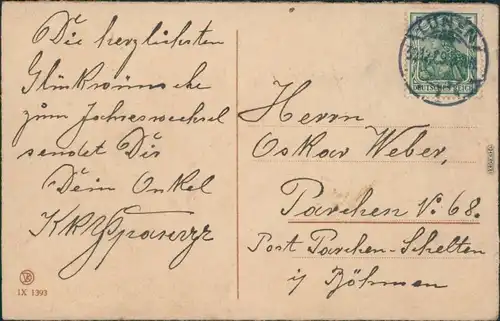 Die herzlichsten
Glückwünsche
zum Jahreswechsel
sendet Dir
Dein Onkel
Herrn
Oskar Weber,
Parchen No. 68.
Post Parchen-Schelten
i/ Böhmen
LÜNEN
DEUTSCHES REICH
IX 1393